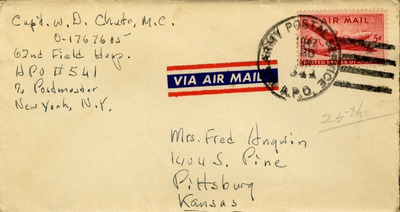 Capt. W. D. Chute, M.C.
O-1767605
62nd Field Hosp.
APO #541
℅ Postmaster
New York, N.Y.
ARMY POSTAL SERVICE
A.P.O.
1947
541
AIR MAIL
5¢
UNITED STATES OF AMERICA
VIA AIR MAIL
Mrs. Fred Angwin
1404 S. Pine
Pittsburg
Kansas